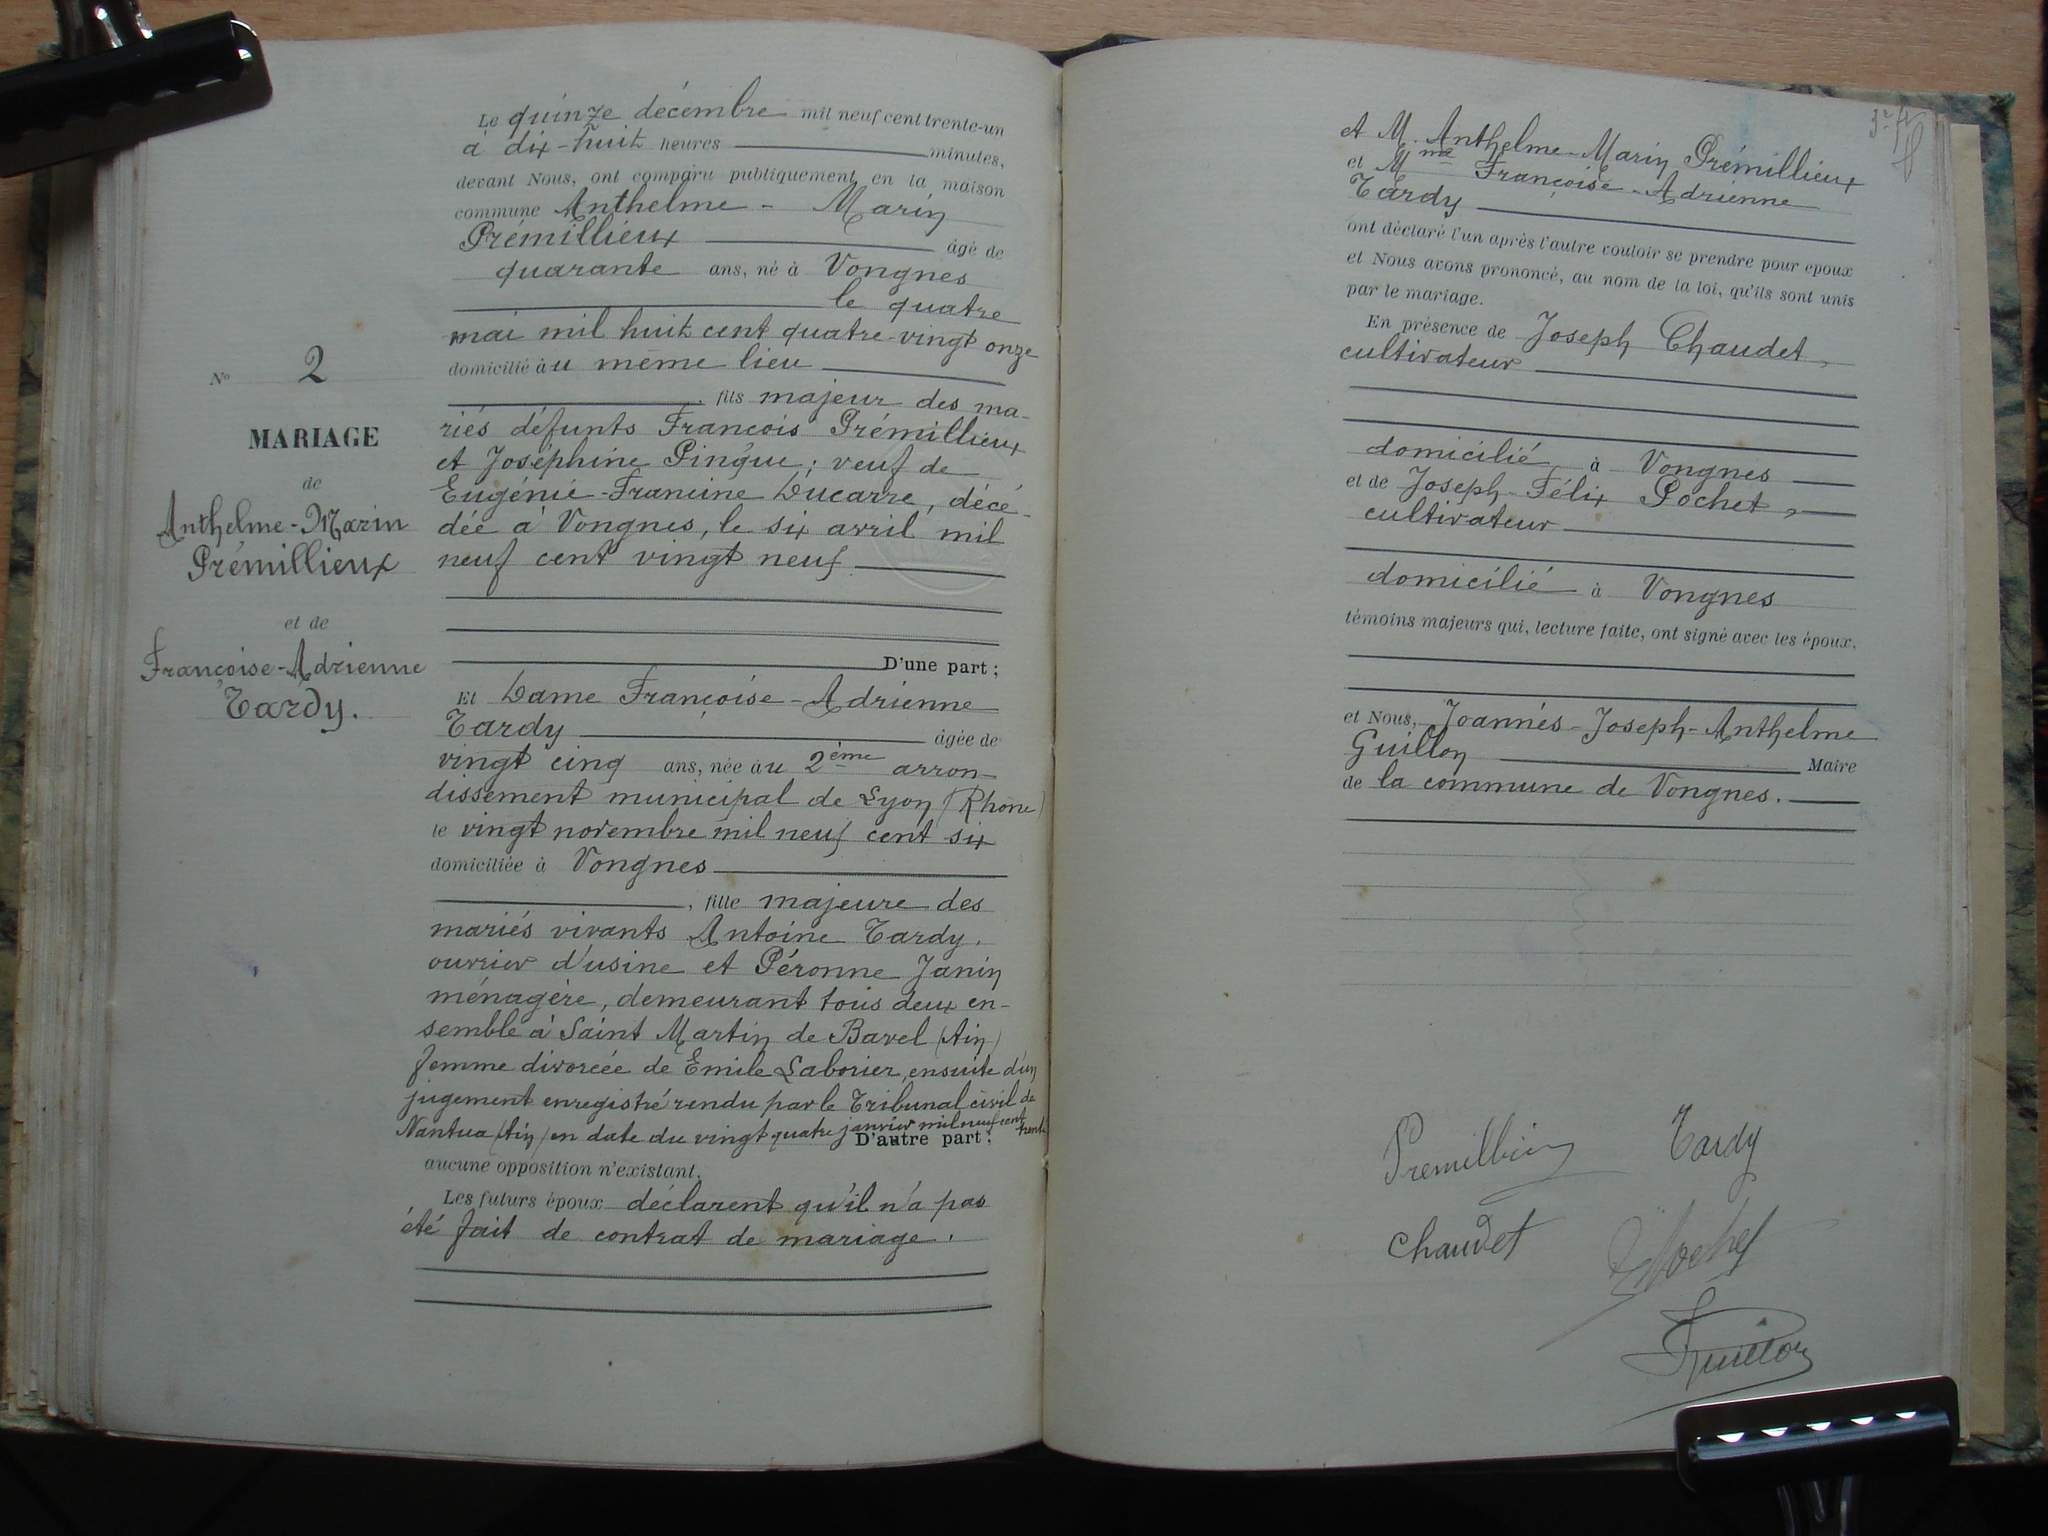 Le quinze décembre mil neuf cent trente-un
à dix-huit heures minutes,
devant Nous, ont comparu publiquement en la maison
commune Anthelme - Marin
Prémillieux âgé de
quarante ans, né à Vongnes
le quatre
mai mil huit cent quatre-vingt onze
domicilié àu même lieu
, fils majeur des ma-
riés défunts François Prémillieux
et Joséphine Pingue ; veuf de
Eugénie-Francine Ducarre, décé-
dée à Vongnes, le six avril mil
neuf cent vingt neuf
D'une part ;
N° 2
MARIAGE
de
Anthelme-Marin
Prémillieux
et de
Françoise-Adrienne
Tardy.
Et Dame Françoise-Adrienne
Tardy âgée de
vingt cinq ans, née àu 2ème arron-
dissement municipal de Lyon (Rhône)
le vingt novembre mil neuf cent six
domiciliée à Vongnes
, fille majeure des
mariés vivants Antoine Tardy,
ouvrier d'usine et Péronne Janin
ménagère, demeurant tous deux en-
semble à Saint Martin de Bavel (Ain)
femme divorcée de Emile Laborier, ensuite d'un
jugement enregistré rendu par le Tribunal civil de
Nantua (Ain) en date du vingt quatre janvier mil neuf cent trente
D'autre part ;
aucune opposition n'existant.
Les futurs époux déclarent qu'il n'a pas
été fait de contrat de mariage.
et M. Anthelme-Marin Prémillieux
et Mme Françoise-Adrienne
Tardy
ont déclaré l'un après l'autre vouloir se prendre pour époux
et Nous avons prononcé, au nom de la loi, qu'ils sont unis
par le mariage.
En présence de Joseph Chaudet,
cultivateur
domicilié à Vongnes
et de Joseph-Félix Pochet,
cultivateur
domicilié à Vongnes
témoins majeurs qui, lecture faite, ont signé avec les époux,
et Nous, Joannès-Joseph-Anthelme
Guillon Maire
de la commune de Vongnes.
Premillieux Tardy
Chaudet Pochet
Guillon